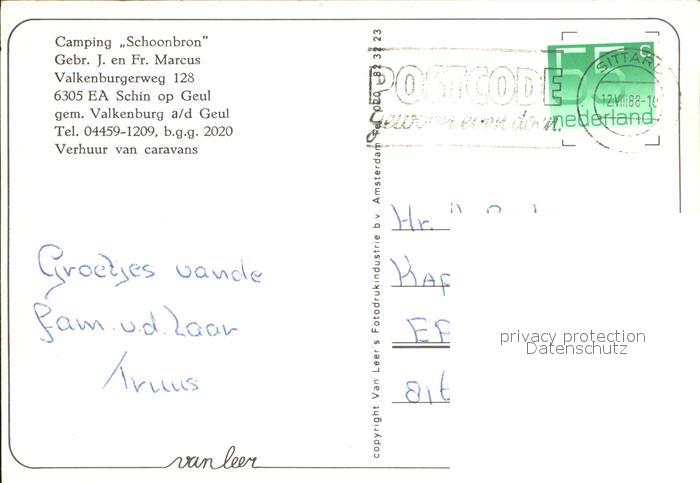 Camping „Schoonbron"
Gebr. J. en Fr. Marcus
Valkenburgerweg 128
6305 EA Schin op Geul
gem. Valkenburg a/d Geul
Tel. 04459-1209, b.g.g. 2020
Verhuur van caravans
Groetjes vande
fam. v.d. Laar
Truus
van leer
copyright Van Leer's Fotodrukindustrie b.v. Amsterdam 020 - 82 32 23
POSTCODE
gewoon even doen.
55 c
nederland
SITTARD
12.VIII.88-1
Hr.
KAP
privacy protection
Datenschutz